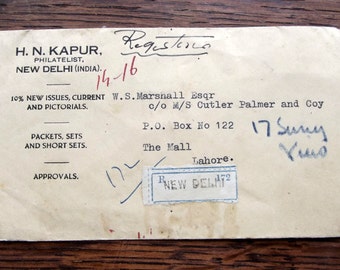 H. N. KAPUR,
PHILATELIST,
NEW DELHI (INDIA).
Registered
14-16
10% NEW ISSUES, CURRENT
AND PICTORIALS.
PACKETS, SETS
AND SHORT SETS.
APPROVALS.
W.S.Marshall Esqr
c/o M/S Cutler Palmer and Coy
P.O. Box No 122
The Mall
Lahore.
17
172
R 172
NEW DELHI